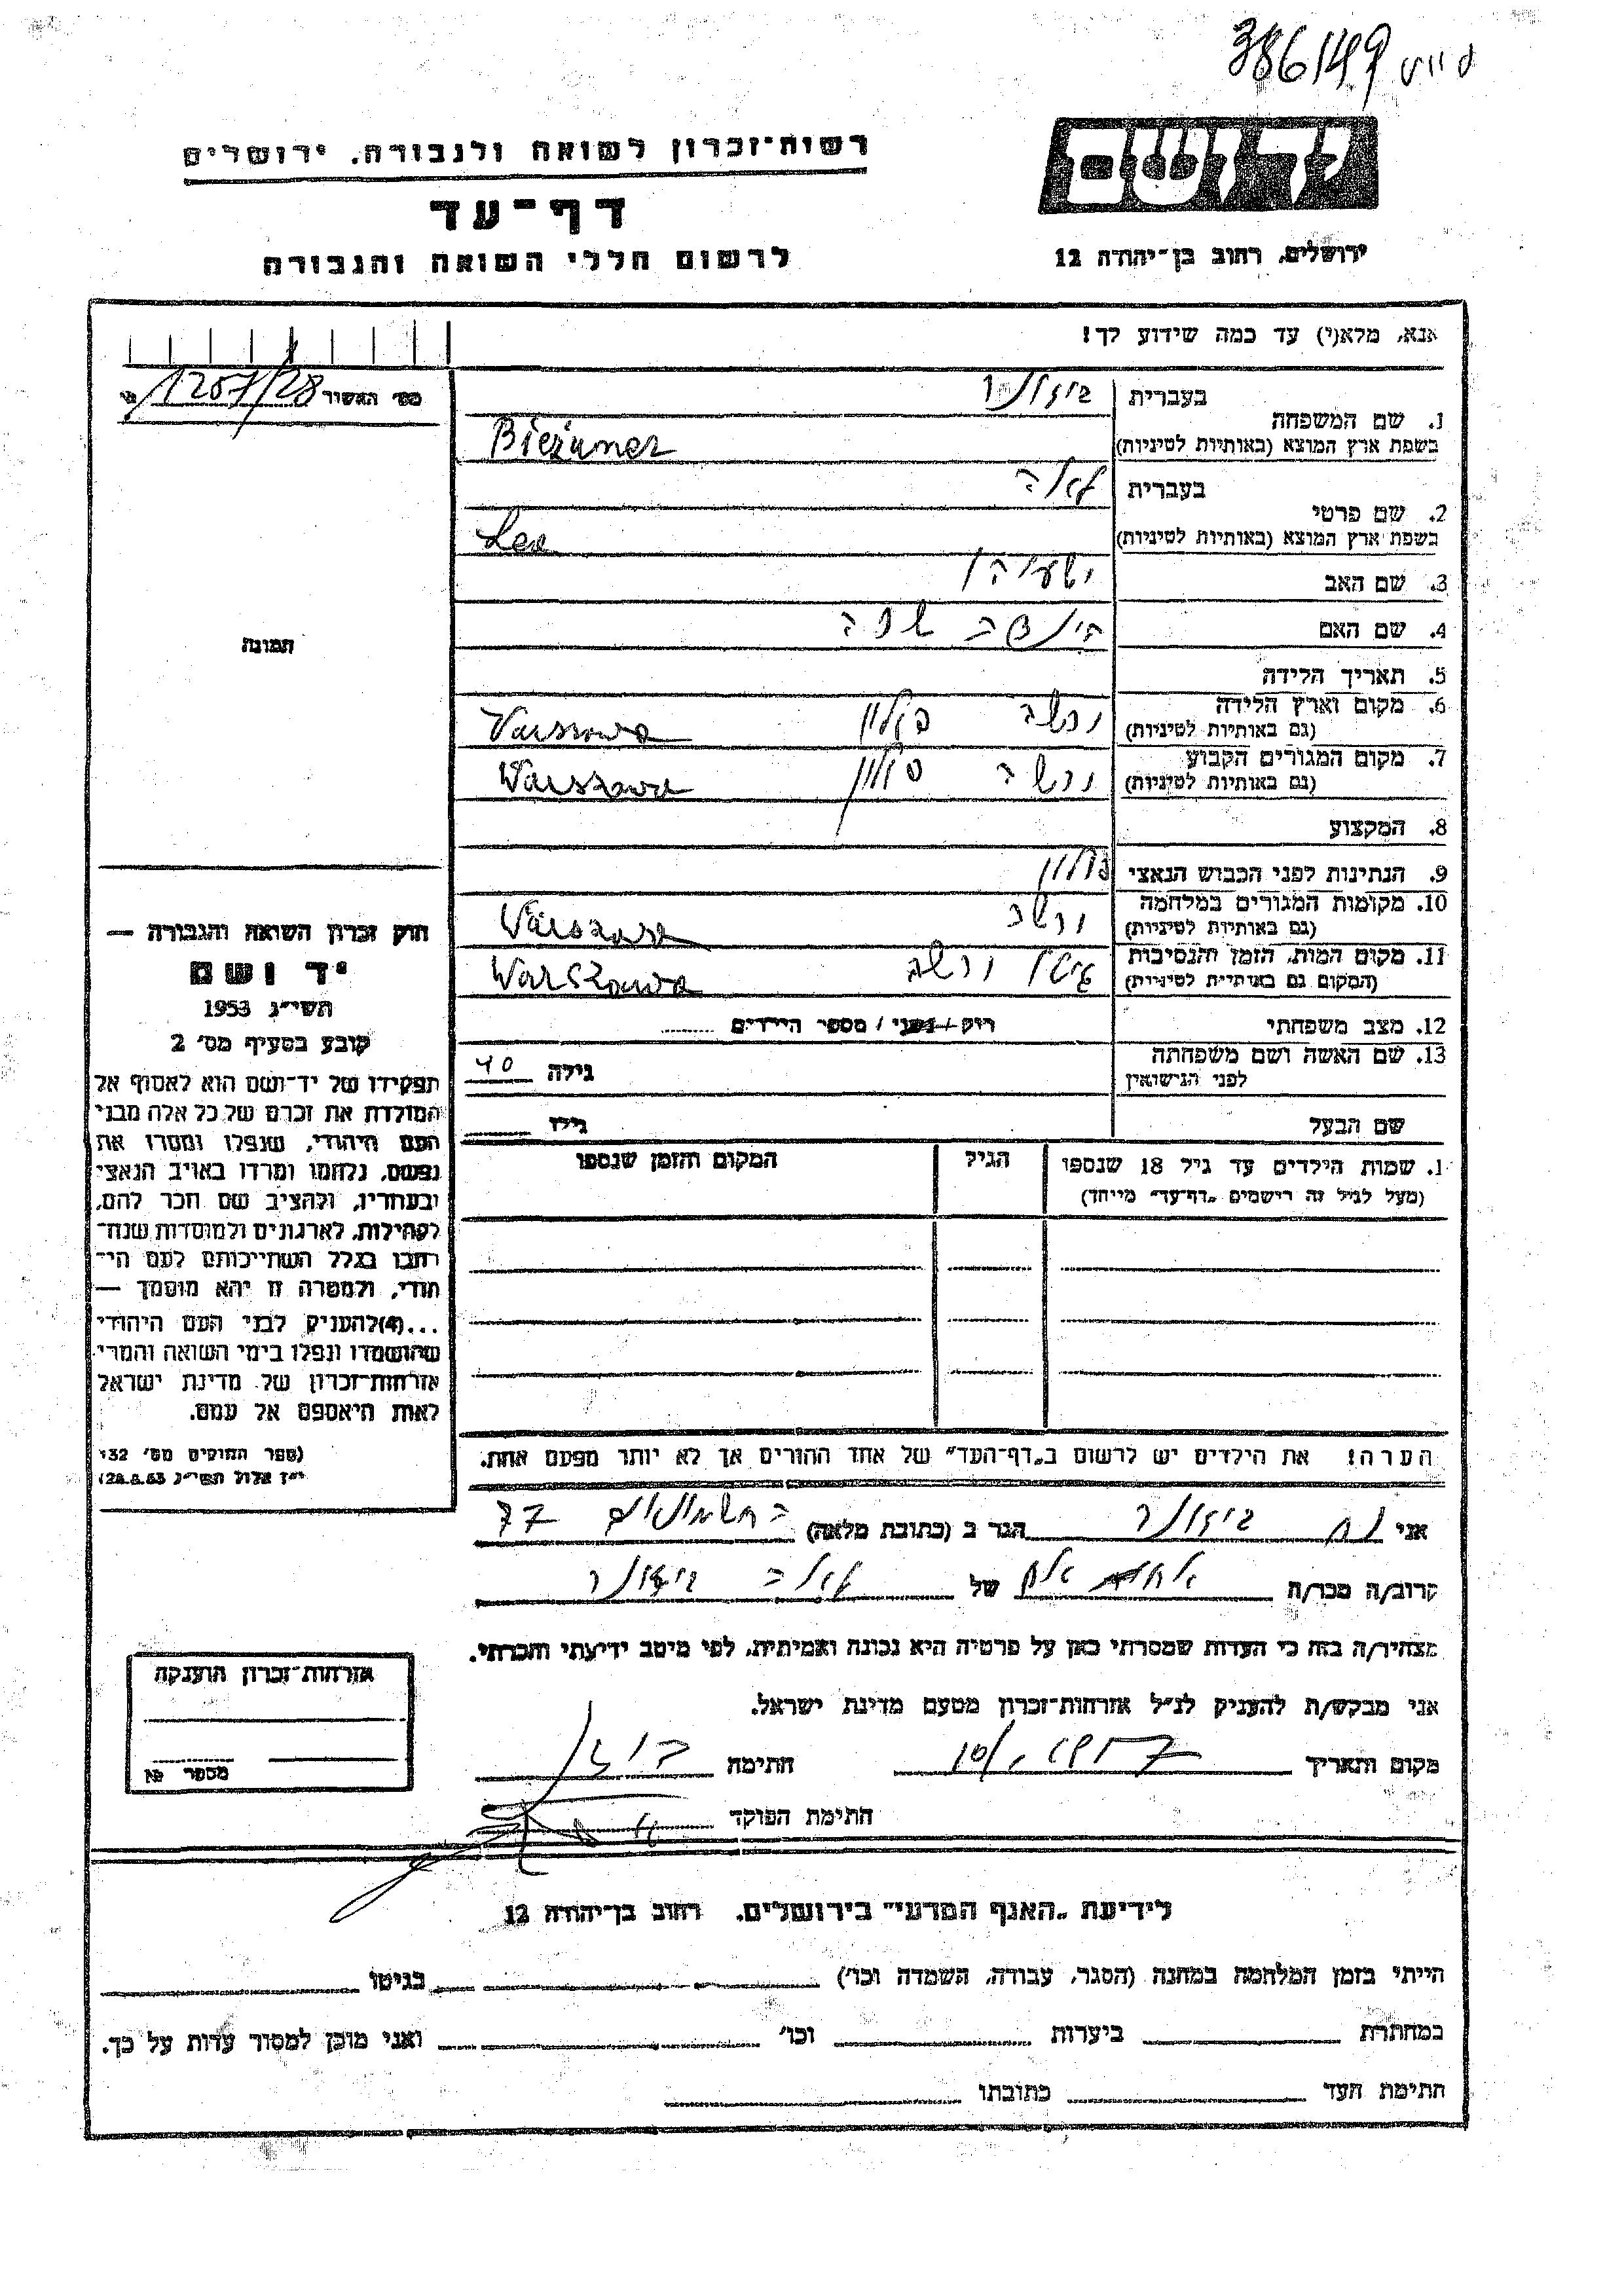 386149
רשות־זכרון לשואה ולגבורה. ירושלים
דף־עד
לרשום חללי השואה והגבורה
יד ושם
ירושלים, רחוב בן־יהודה 12
אנא, מלא(י) עד כמה שידוע לך!
מס' האשיר 1257/28
בעברית
1. שם המשפחה
בשפת ארץ המוצא (באותיות לטיניות) Bieżuner
בעברית לאה
2. שם פרטי
בשפת ארץ המוצא (באותיות לטיניות) Lea
3. שם האב ישעיהו
4. שם האם הינדה
5. תאריך הלידה
6. מקום וארץ הלידה ורשה פולין Varszowa
(גם באותיות לטיניות)
7. מקום המגורים הקבוע ורשה פולין Warszawa
(גם באותיות לטיניות)
8. המקצוע
9. הנתינות לפני הכבוש הנאצי פולין
10. מקומות המגורים במלחמה ורשה Warszawa
(גם באותיות לטיניות)
11. מקום המות, הזמן והנסיבות גיטו ורשה Warszawa
(המקום גם באותיות לטיניות)
12. מצב משפחתי רוק / נשוי / מספר הילדים
13. שם האשה ושם משפחתה גילה 40
לפני הנישואין
שם הבעל גילו
תמונה
חוק זכרון השואה והגבורה —
יד ושם
תשי״ג 1953
קובע בסעיף מס׳ 2
תפקידו של יד־ושם הוא לאסוף אל
המולדת את זכרם של כל אלה מבני
העם היהודי, שנפלו ומסרו את
נפשם, נלחמו ומרדו באויב הנאצי
ובעוזריו, ולהציב שם וזכר להם,
לקהילות, לארגונים ולמוסדות שנח־
רבו בגלל השתייכותם לעם הי־
הודי, ולמטרה זו יהא מוסמך —
...(4)להעניק לבני העם היהודי
שהושמדו ונפלו בימי השואה והמרי
אזרחות־זכרון של מדינת ישראל
לאות היאספם אל עמם.
(ספר החוקים מס׳ 132
י״ז אלול תשי״ג 28.8.53)
1. שמות הילדים עד גיל 18 שנספו הגיל המקום והזמן שנספו
(מעל לגיל זה רישמים „דף־עד״ מייחד)
הערה! את הילדים יש לרשום ב„דף־העד״ של אחד ההורים אך לא יותר מפעם אחת.
אני ביזונר הגר ב (כתובת מלאה) החשמונאים 77
קרוב/ה מכר/ה של לאה ביזונר
מצהיר/ה בזה כי העדות שמסרתי כאן על פרטיה היא נכונה ואמיתית, לפי מיטב ידיעתי והכרתי.
אני מבקש/ת להעניק לנ״ל אזרחות־זכרון מטעם מדינת ישראל.
מקום ותאריך חתימה
חתימת הפוקד
אזרחות־זכרון הוענקה
מספר
לידיעת „האגף המדעי״ בירושלים. רחוב בן־יהודה 12
הייתי בזמן המלחמה במחנה (הסגר, עבודה, השמדה וכו׳) בגיטו
במחתרת ביערות וכו׳ ואני מוכן למסור עדות על כך.
חתימת העד כתובתו